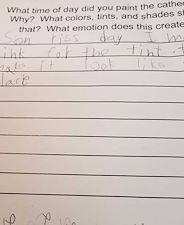 What time of day did you paint the cathe
Why? What colors, tints, and shades s
that? What emotion does this create
Son riss day I m
ink for the tint it
maks it look like